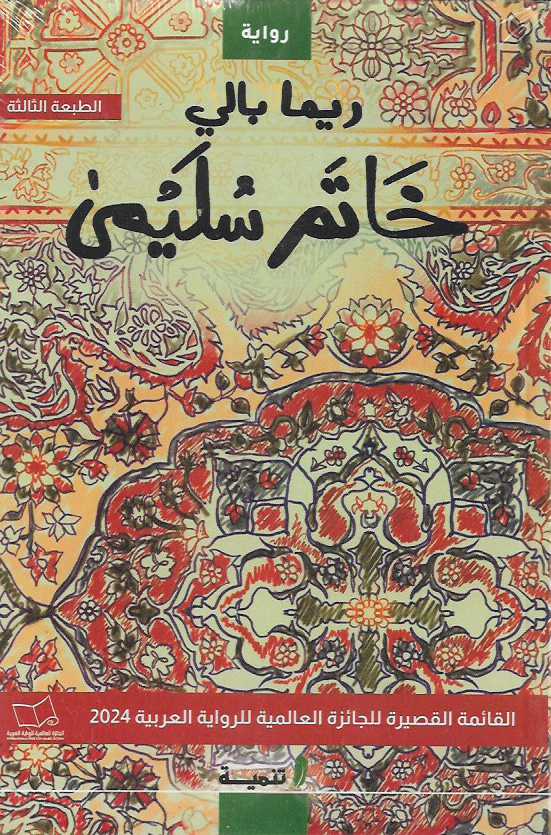 رواية
ريما بالي
الطبعة الثالثة
خَاتَم سُلَيْمىٰ
القائمة القصيرة للجائزة العالمية للرواية العربية 2024
الجائزة العالمية للرواية العربية
تنمية